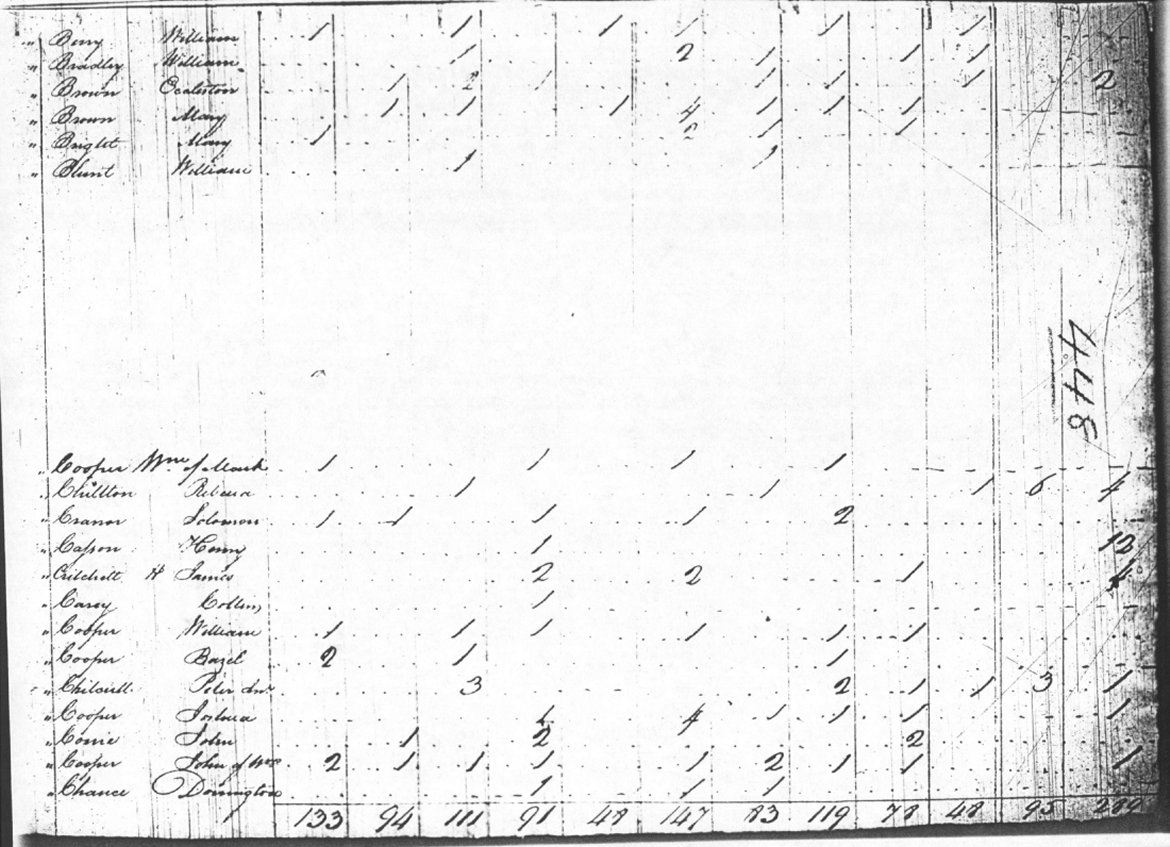 " Berry William 1 1 1 1 1 1
" Bradley William 1 2 1 1 1
" Brown 1 2 1 1 1 1 2
" Brown Mary 1 1 1 4 1 1 1
" Bright Mary 1 2 1 1
" Blunt William 1 1
448
" Cooper Wm of Mark 1 1 1 1
" Chillton Rebecca 1 1 1 6 4
" Cranor Solomon 1 1 1 1 2
" Casson Henry 1 12
" Critchett H James 2 2 1
" Carey 1
" Cooper William 1 1 1 1 1 1
" Cooper Bazel 2 1 1
" Peter 3 2 1 1 3 1
" Cooper Joshua 1 4 1 1 1 1
" John 1 2 2
" Cooper John of Wm 2 1 1 1 1 2 1 1 1
" Chance 1 1 1
133 94 111 91 48 147 83 119 78 48 95